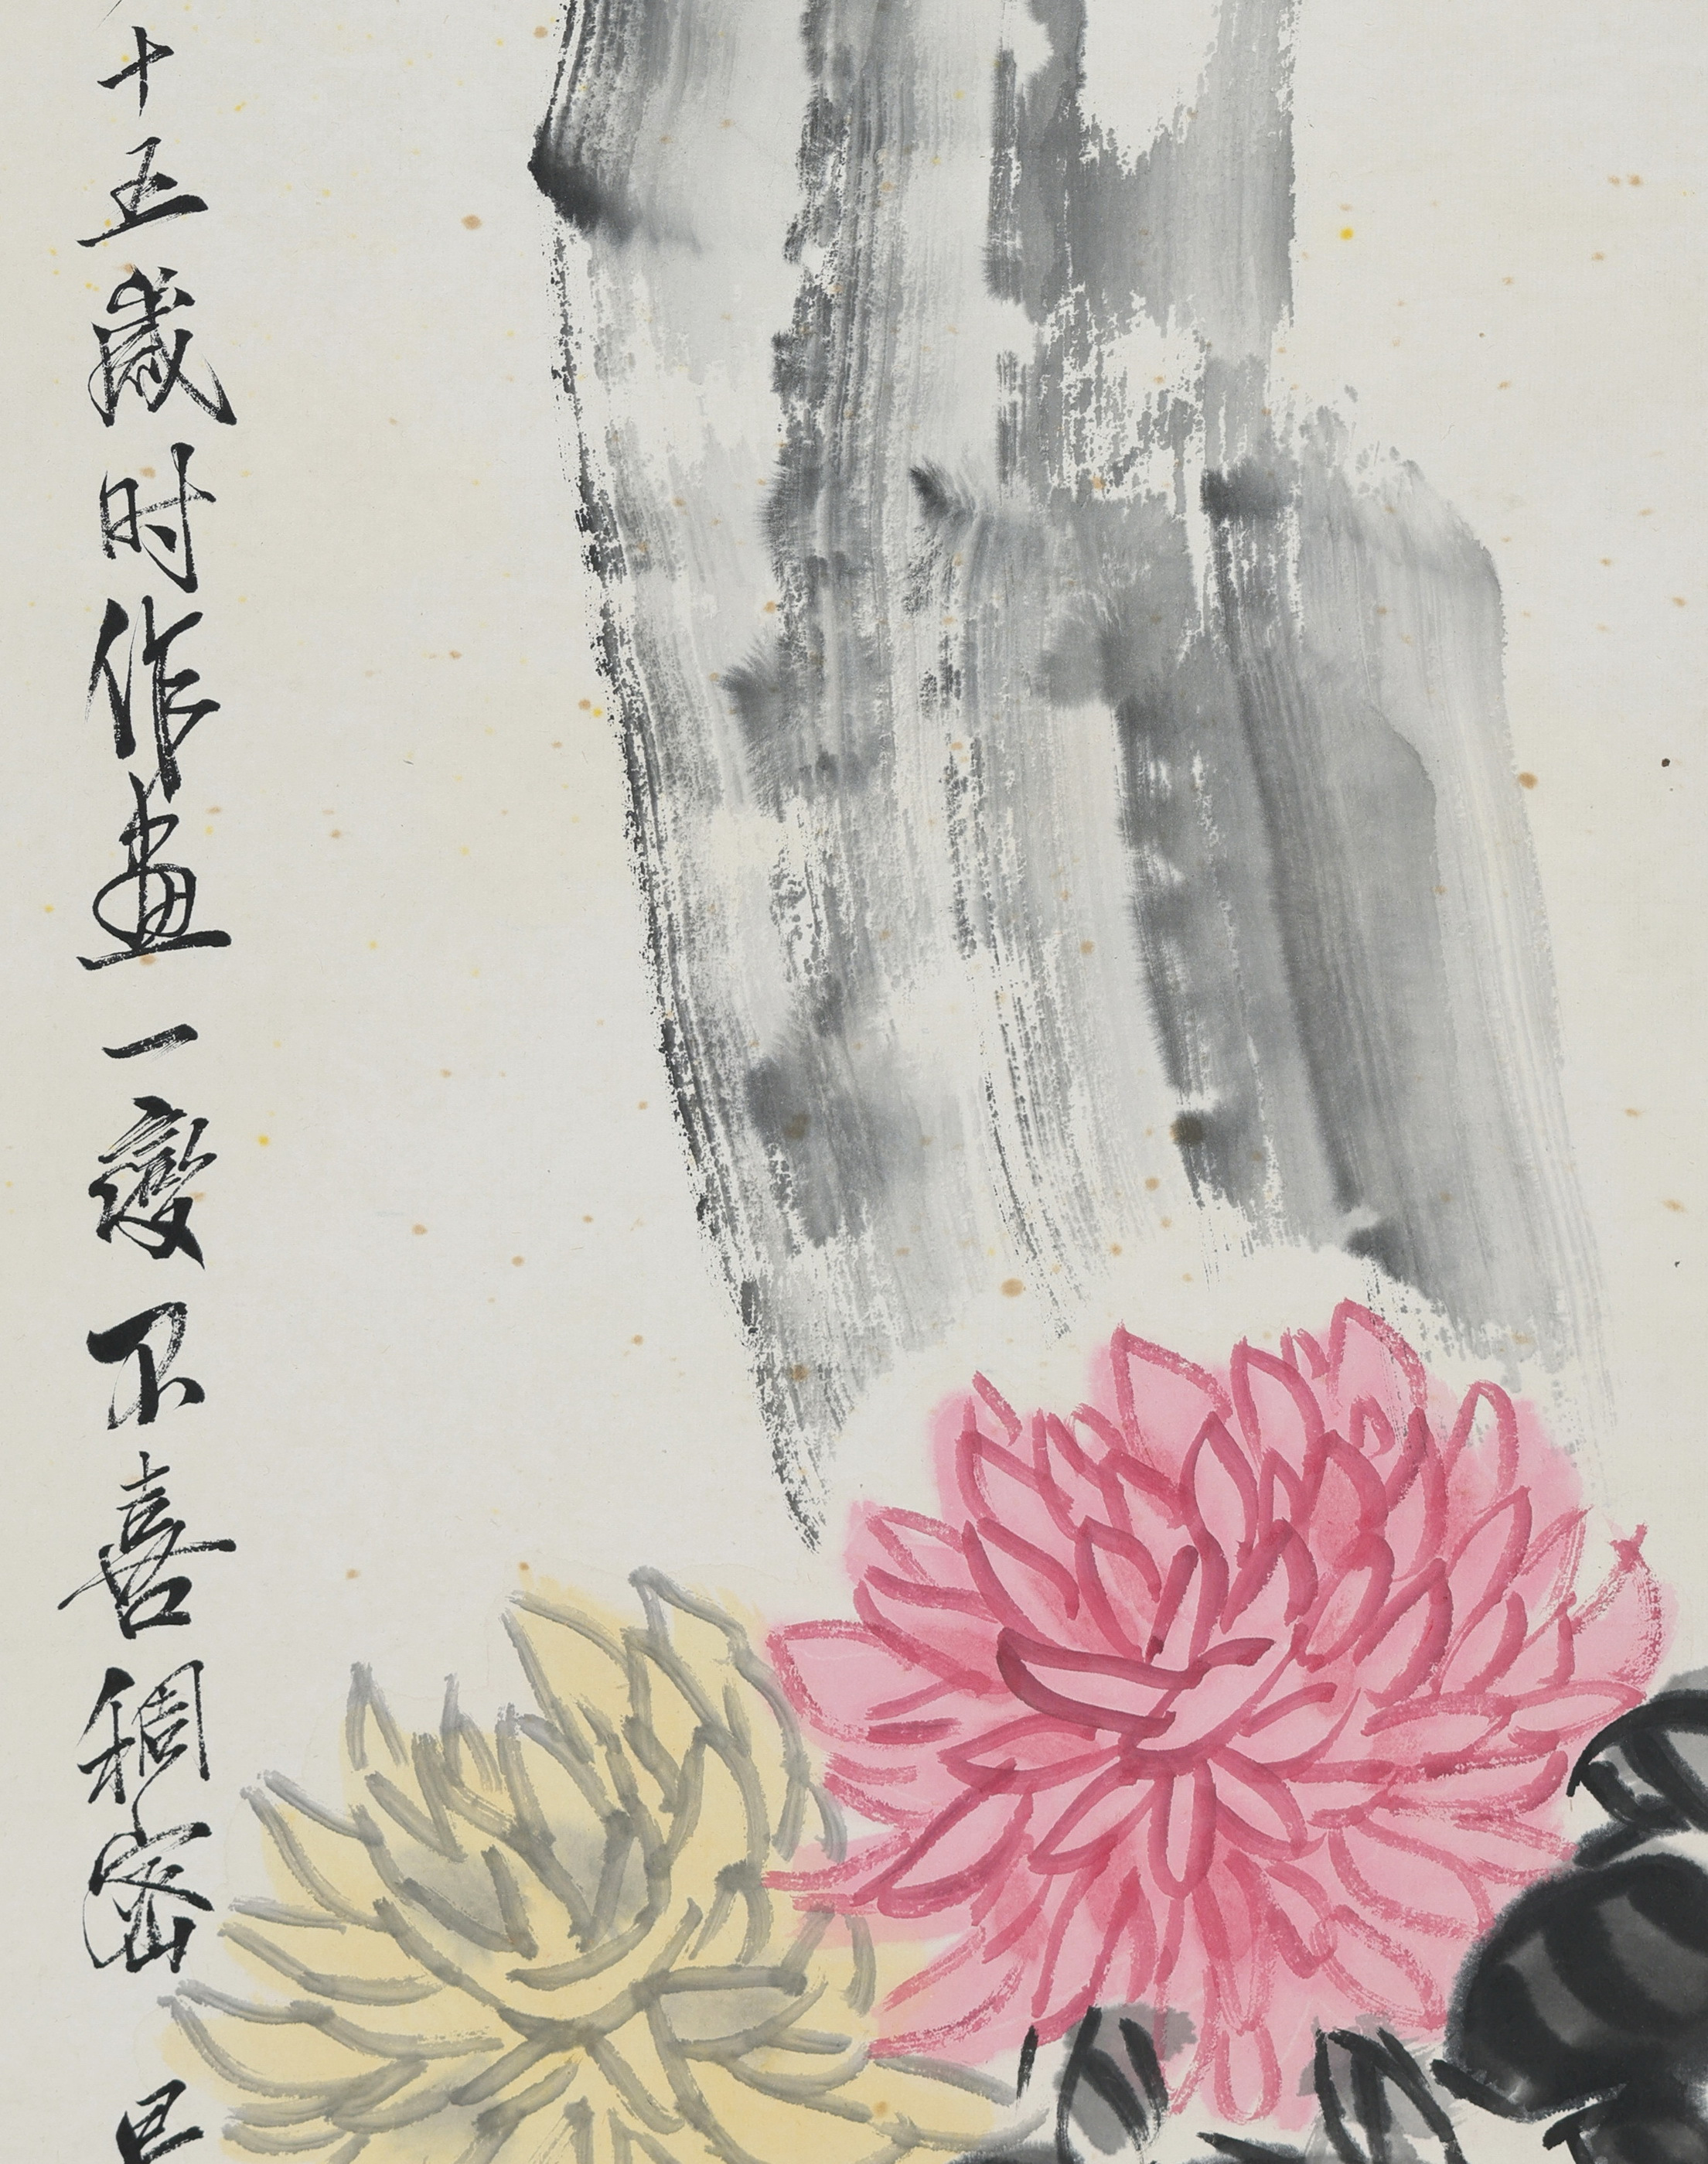 十五歲时作畫一變不喜稠密